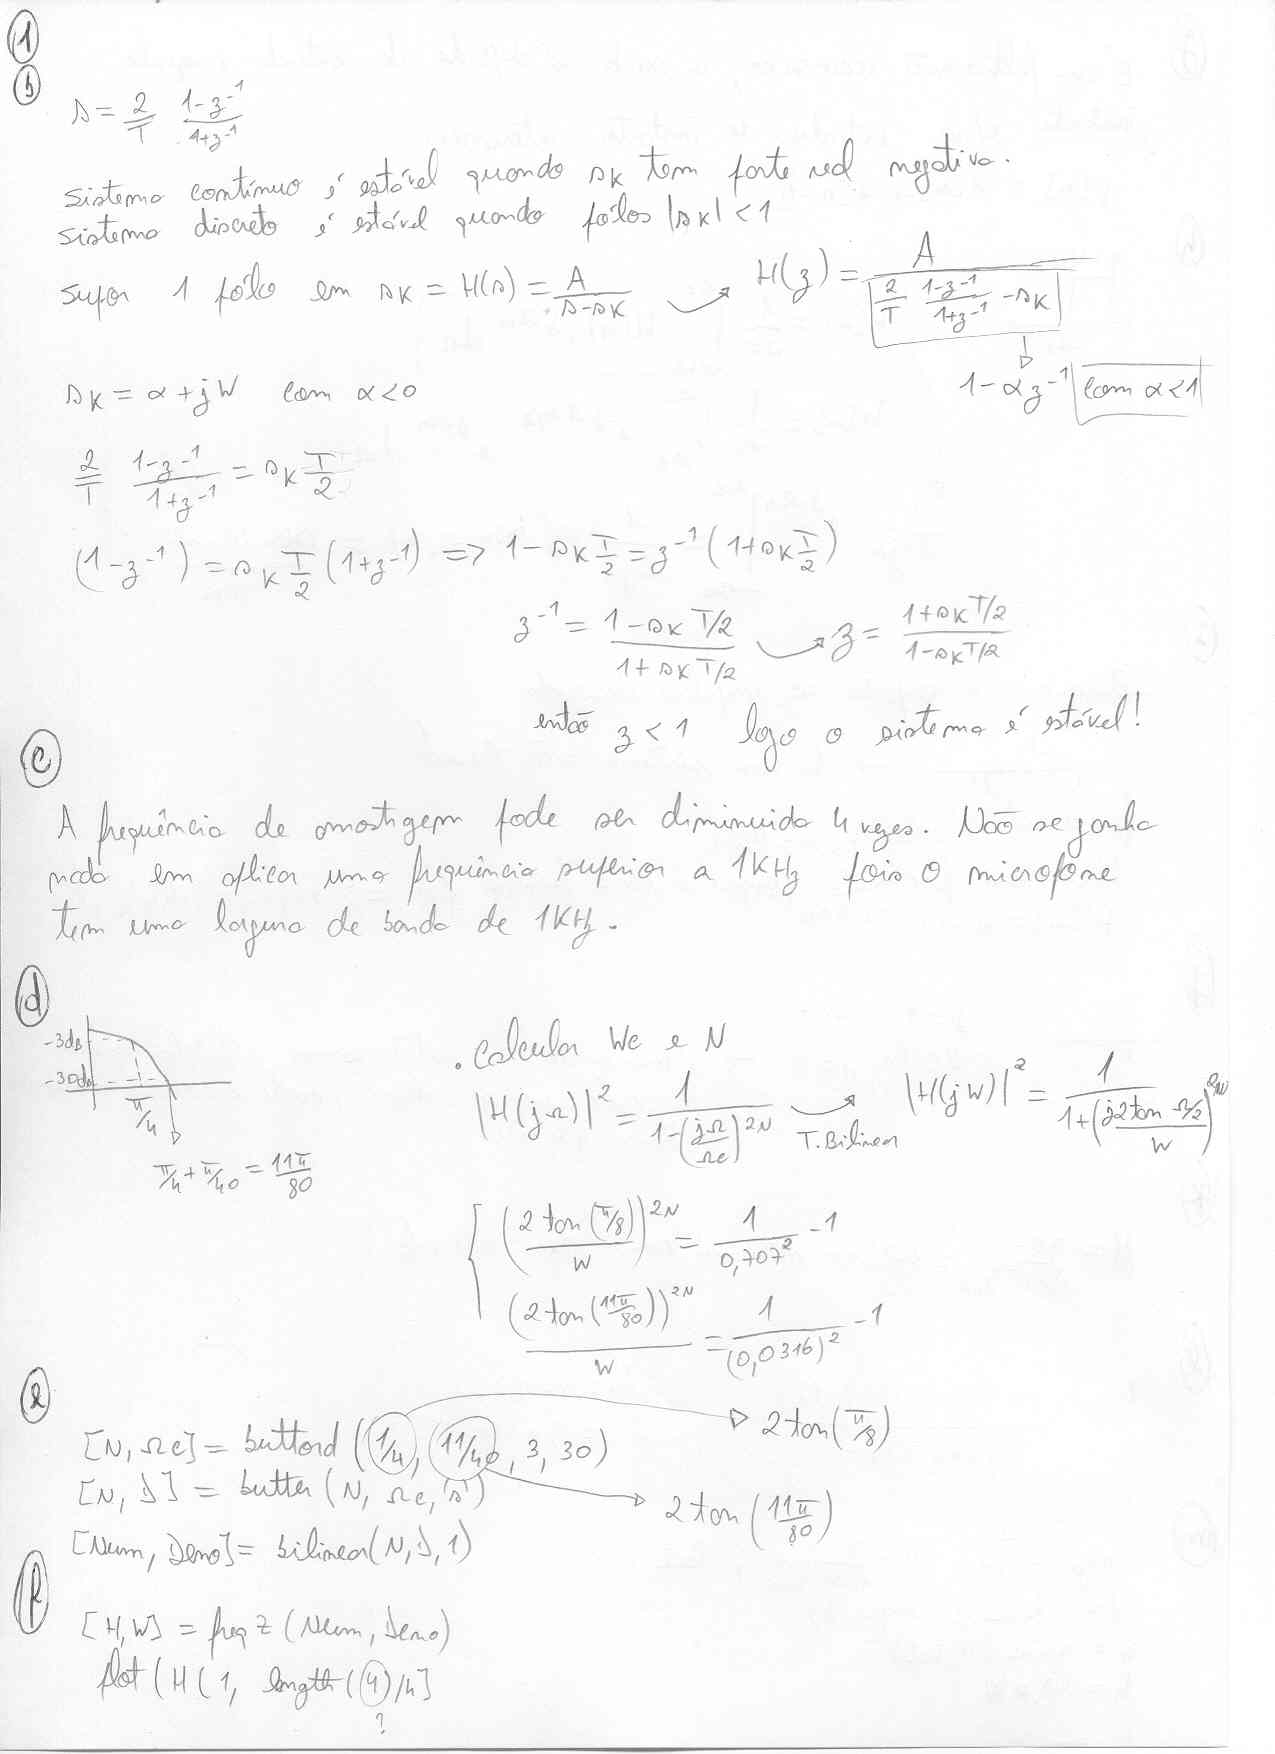 1
b
s = 2/T (1-z^-1)/(1+z^-1)
sistema contínuo é estável quando sK tem parte real negativa.
sistema discreto é estável quando pólos |sK| < 1
supor 1 pólo em sK = H(s) = A/(s-sK) → H(z) = A/(2/T (1-z^-1)/(1+z^-1) - sK)
1-αz^-1 com α<1
sK = α + jW com α<0
2/T (1-z^-1)/(1+z^-1) = sK T/2
(1-z^-1) = sK T/2 (1+z^-1) => 1-sK T/2 = z^-1 (1+sK T/2)
z^-1 = (1-sK T/2)/(1+sK T/2) → z = (1+sK T/2)/(1-sK T/2)
então z < 1 logo o sistema é estável!
c
A frequência de amostragem pode ser diminuida 4 vezes. Não se ganha
nada em aplicar uma frequência superior a 1KHz pois o microfone
tem uma largura de banda de 1KHz.
d
-3dB
-30dB
π/4
π/4 + π/40 = 11π/80
. Calcular Wc e N
|H(jΩ)|^2 = 1/(1-(jΩ/Ωc)^2N) → T.Bilinear |H(jW)|^2 = 1/(1+(j2tan Ω/2 / W)^2N)
(2 tan(π/8)/W)^2N = 1/0,707^2 - 1
(2 tan(11π/80))^2N / W = 1/(0,0316)^2 - 1
e
[N, Ωc] = buttord (1/4, 11/40, 3, 30) → 2 tan(π/8)
[N, D] = butter (N, Ωc, 's') → 2 tan(11π/80)
[Num, Deno] = bilinear(N, D, 1)
f
[H, W] = freqz (Num, Deno)
plot (H (1, length (4)/4]
?